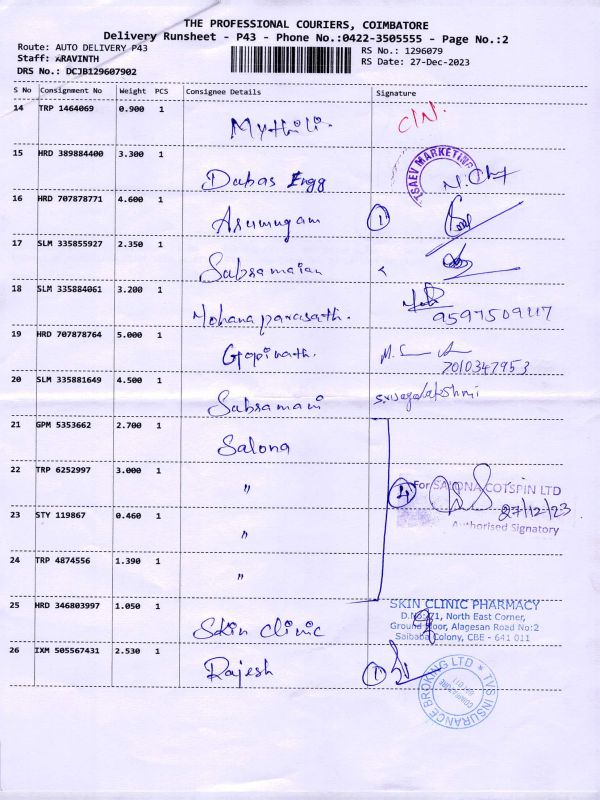 THE PROFESSIONAL COURIERS, COIMBATORE
Delivery Runsheet - P43 - Phone No.:0422-3505555 - Page No.:2
Route: AUTO DELIVERY P43
RS No.: 1296079
Staff: ARAVINTH
RS Date: 27-Dec-2023
DRS No.: DCJB129607902
S No Consignment No Weight PCS Consignee Details Signature
14 TRP 1464069 0.900 1 Mythili. C/N.
15 HRD 389884400 3.300 1 Dabas Engg
MARKETING
16 HRD 707878771 4.600 1 Arumugam 1
17 SLM 335855927 2.350 1 Sabramaian
18 SLM 335884061 3.200 1 Mohana parasath.
19 HRD 707878764 5.000 1 Gopinath.
7010347953
20 SLM 335881649 4.500 1 Sabramani
21 GPM 5353662 2.700 1 Salona
22 TRP 6252997 3.000 1 "
4 For SALONA COTSPIN LTD
27/12/23
Authorised Signatory
23 STY 119867 0.460 1 "
24 TRP 4874556 1.390 1 "
25 HRD 346803997 1.050 1 Skin clinic
SKIN CLINIC PHARMACY
D.No:71, North East Corner,
Ground Floor, Alagesan Road No:2
Saibaba Colony, CBE - 641 011
26 IXM 505567431 2.530 1 Rajesh 1
TVS INSURANCE BROKING LTD